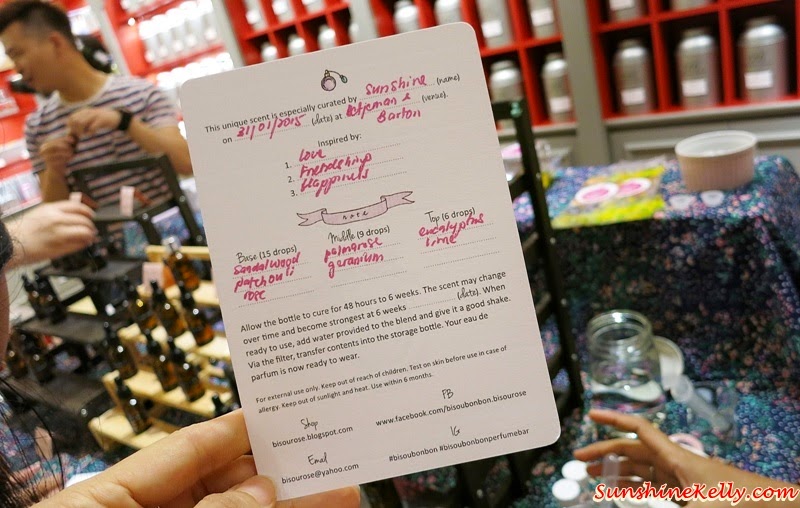 This unique scent is especially curated by Sunshine (name)
on 31/01/2015 (date) at Betjeman & (venue).
Barton
Inspired by:
1. Love
2. Friendship
3. Happiness
note
Base (15 drops)
Sandalwood
patchouli
rose
Middle (9 drops)
palmarose
geranium
Top (6 drops)
eucalyptus
lime
Allow the bottle to cure for 48 hours to 6 weeks. The scent may change
over time and become strongest at 6 weeks (date). When
ready to use, add water provided to the blend and give it a good shake.
Via the filter, transfer contents into the storage bottle. Your eau de
parfum is now ready to wear.
For external use only. Keep out of reach of children. Test on skin before use in case of
allergy. Keep out of sunlight and heat. Use within 6 months.
Shop
bisourose.blogspot.com
FB
www.facebook.com/bisoubonbon.bisourose
Email
bisourose@yahoo.com
IG
#bisoubonbon #bisoubonbonperfumebar
SunshineKelly.com